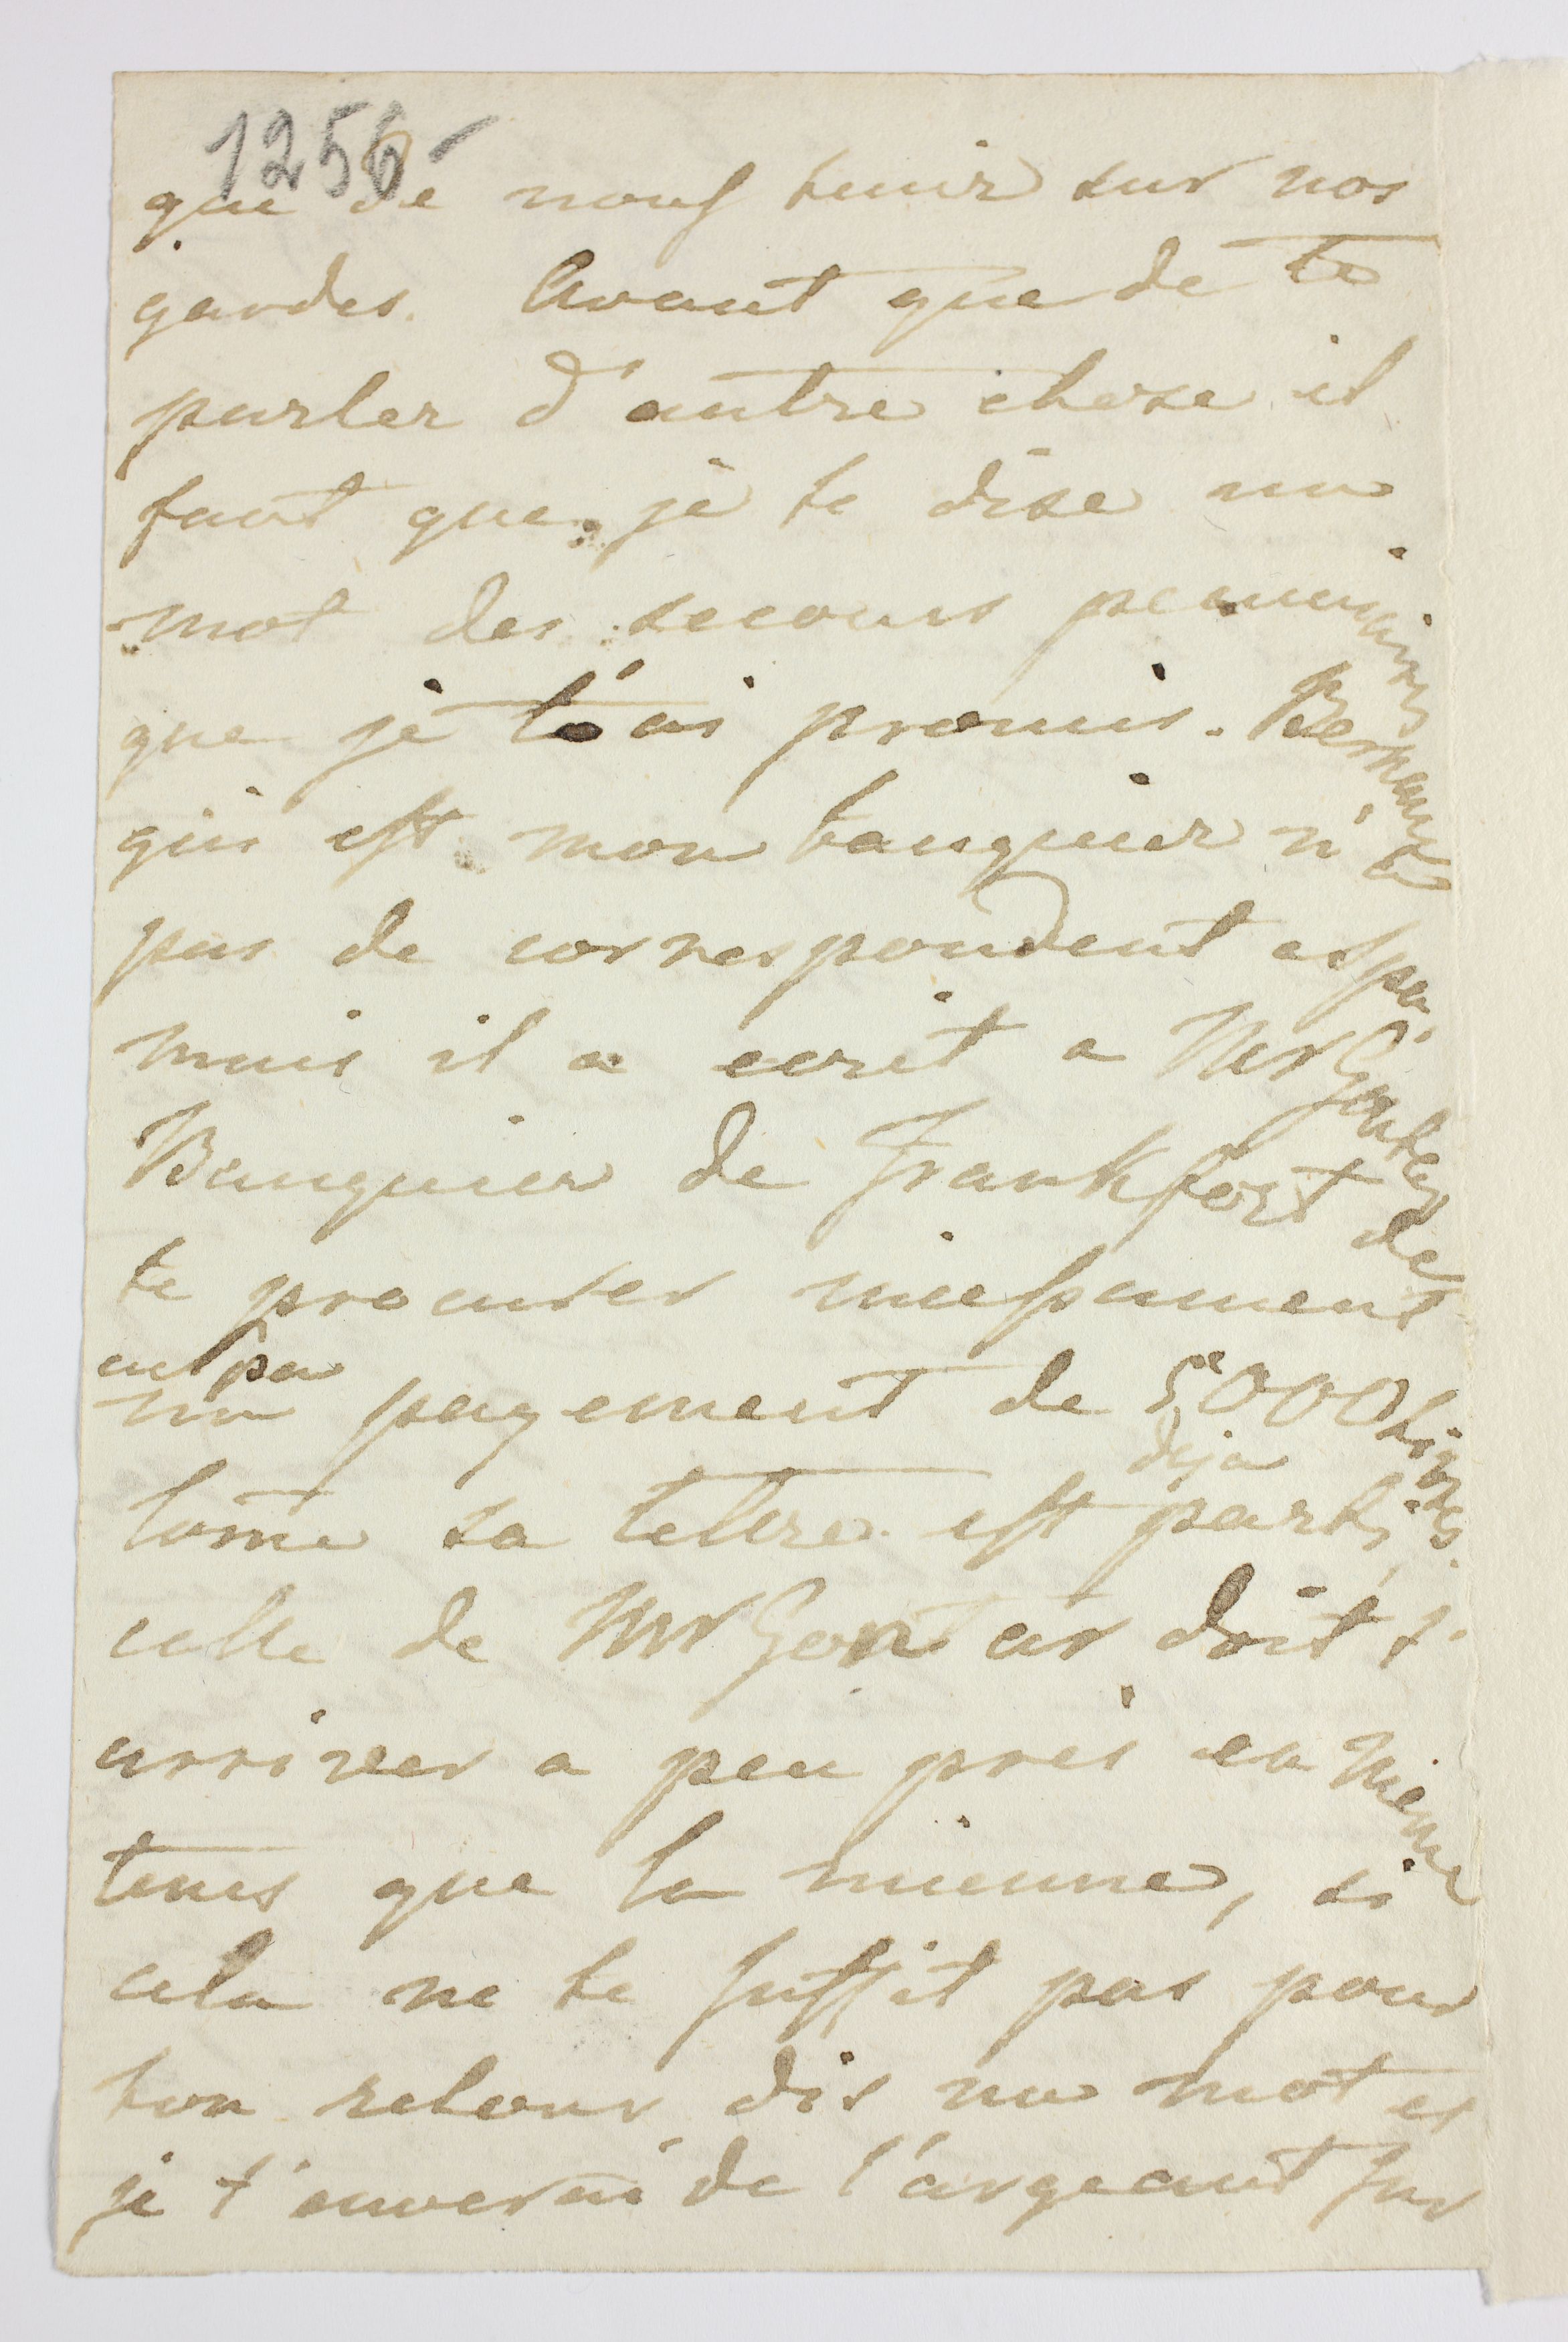 1256
que de nous tenir sur nos
gardes. Avant que de te
parler d'autre chose il
faut que je te dise un
mot des secours pecuniairs
que je t'ai promis.
qui est mon banquier n'a
pas de correspondent a spa.
mais il a ecrit a Mr Gontar
Banquier de Frankfort de
te procurer incessament
a spa
un payement de 5000 Livres.
come sa lettre est deja parti,
celle de Mr Gontar doit t'
arriver a peu pres en meme
tems que la mienne, si
cela ne te suffit pas pour
ton retour dis un mot et
je t'enverai de l'argeant sur